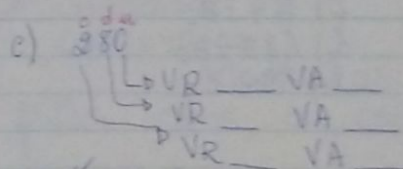 c d u
e) 280
VR ____ VA ____
VR ____ VA ____
VR ____ VA ____